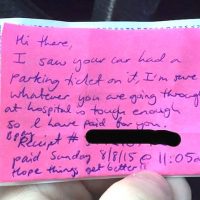 Hi there,
I saw your car had a
parking ticket on it, I'm sure
whatever you are going through
at hospital is tough enough
so I have paid for you.
Receipt #
paid Sunday 8/8/15 @ 11:05a
Hope things get better!!